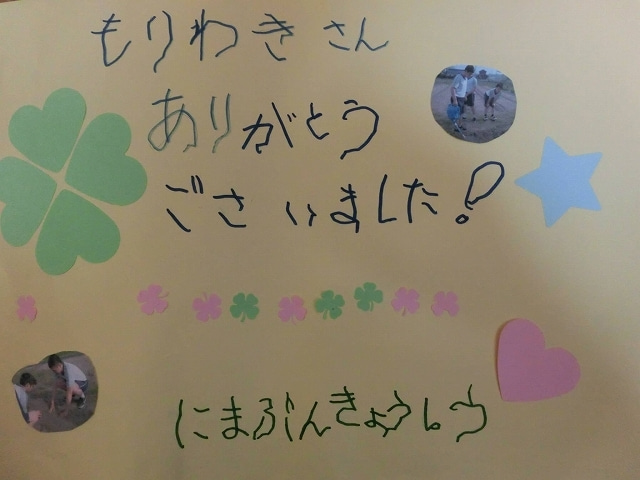 もりわき さん
ありがとう
ございました!
にまぶんきょうしつ